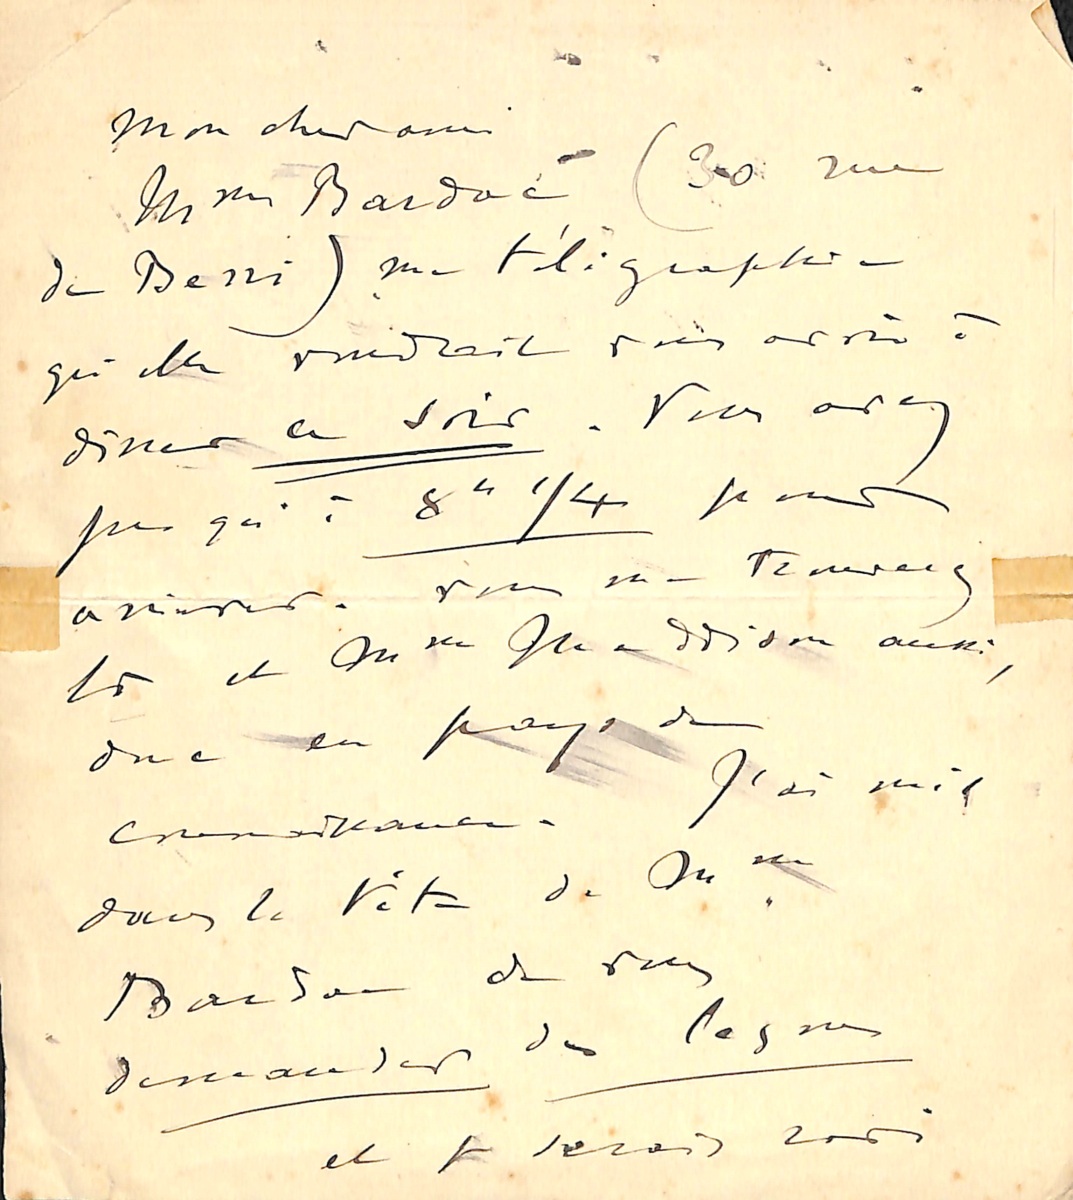 Mon cher ami
Mme Bardac (30 rue
de Berri) me télégraphie
qu'elle voudrait vous avoir à
diner ce soir. Vous avez
jusqu'à 8h 1/4 pour
arriver. Vous me trouverez
là et Mme Maddison aussi,
donc en pays de
connaissance. J'ai mis
dans la tête de Mme
Bardac de vous
demander des leçons
et je serais ravi